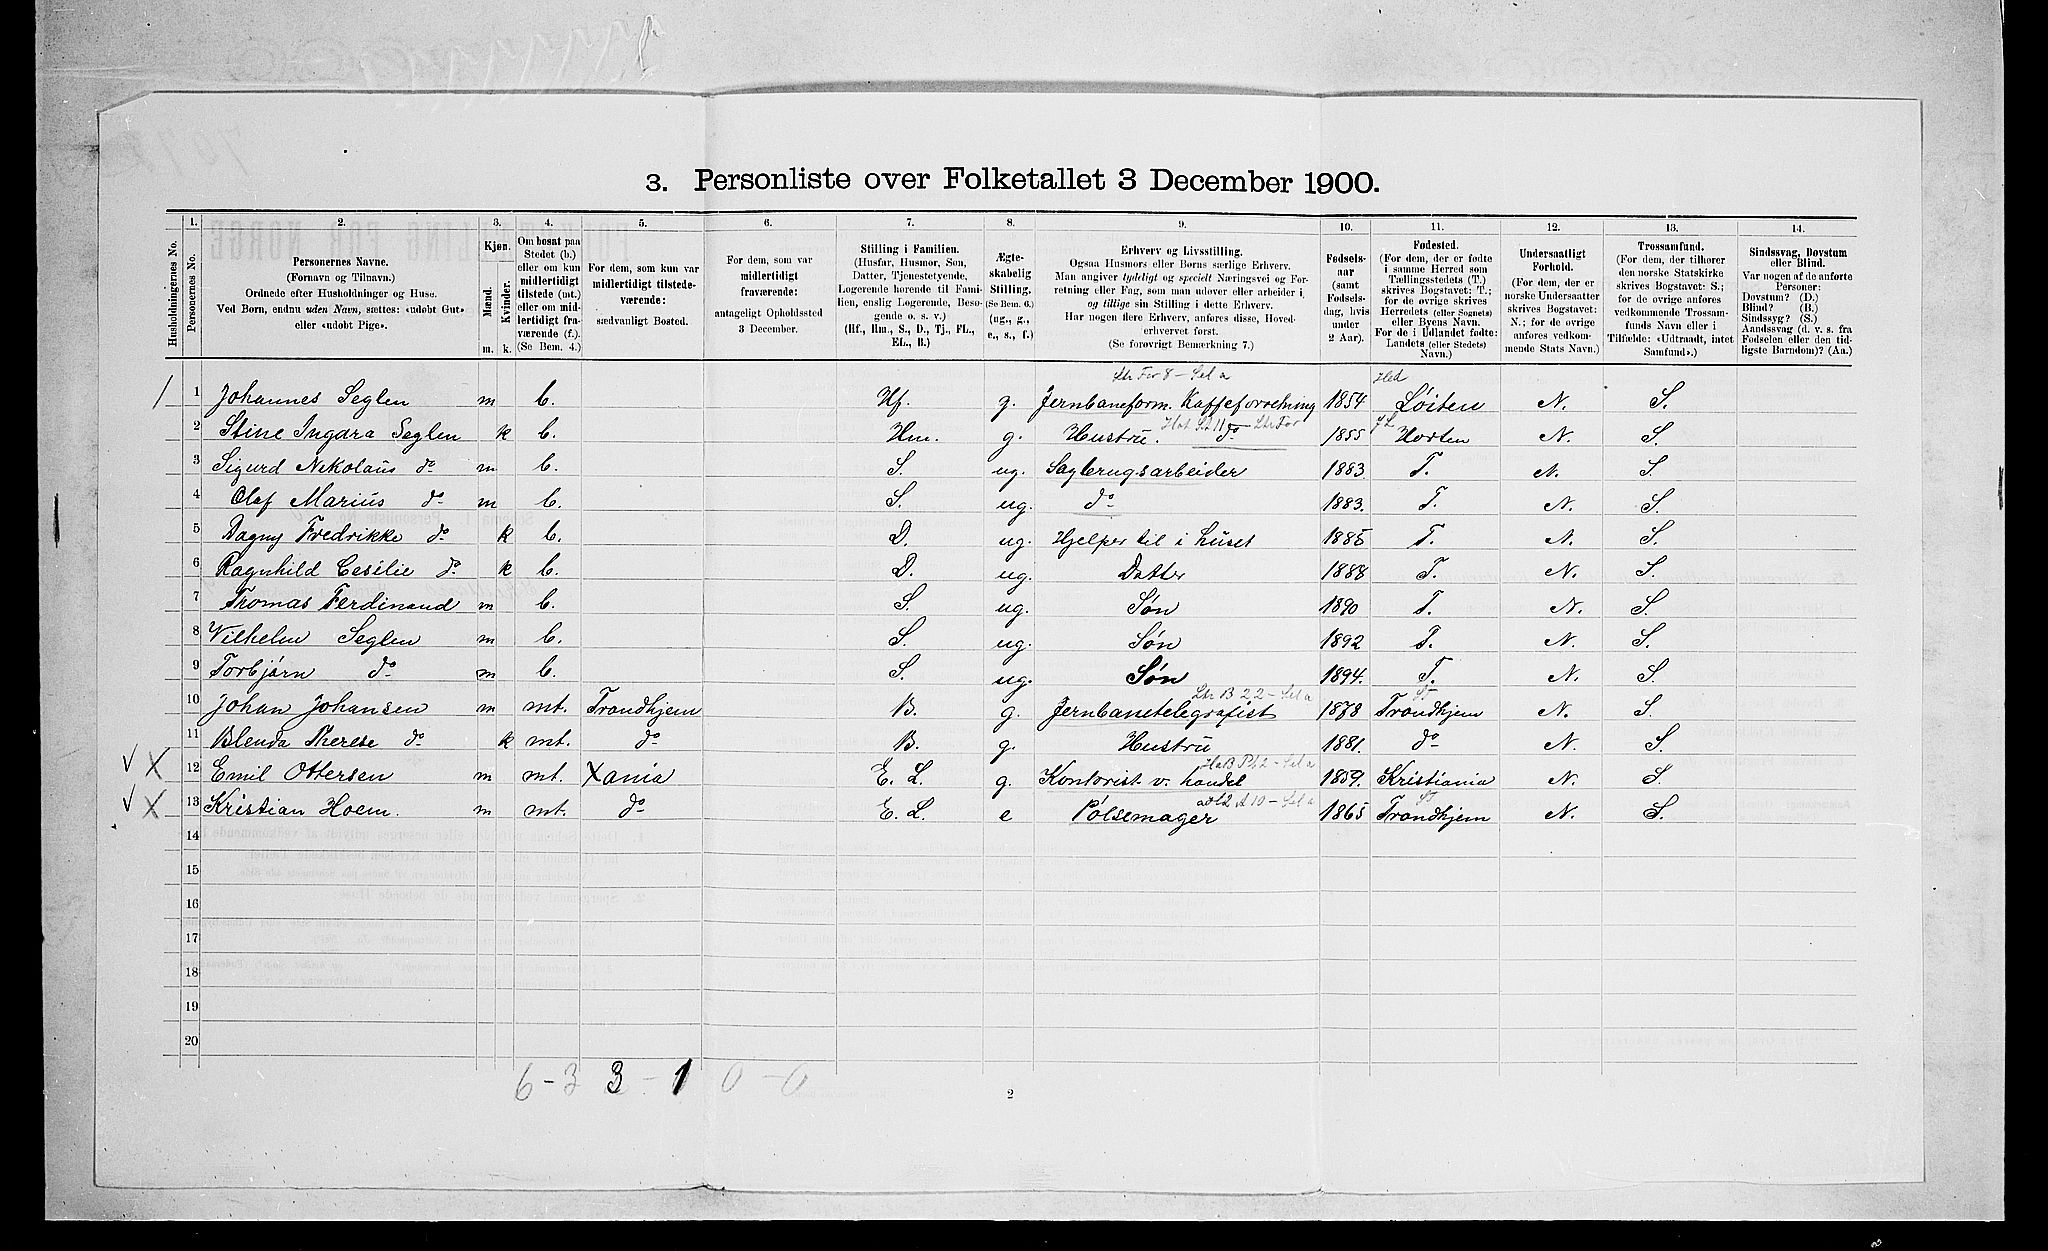 3. Personliste over Folketallet 3 December 1900.
Husholdningernes No.
1. Personernes No.
2. Personernes Navne.
(Fornavn og Tilnavn.)
Ordnede efter Husholdninger og Huse.
Ved Børn, endnu uden Navn, sættes: «udøbt Gut»
eller «udøbt Pige».
3. Kjøn.
Mænd. Kvinder.
m. k.
4. Om bosat paa
Stedet (b.)
eller om kun
midlertidigt
tilstede (mt.)
eller om mid-
lertidigt fra-
værende (f.).
(Se Bem. 4.)
5. For dem, som kun var
midlertidigt tilstede-
værende:
sædvanligt Bosted.
6. For dem, som var
midlertidigt
fraværende:
antageligt Opholdssted
3 December.
7. Stilling i Familien.
(Husfar, Husmor, Søn,
Datter, Tjenestetyende,
Logerende hørende til Fami-
lien, enslig Logerende, Besø-
gende o. s. v.)
(Hf., Hm., S., D., Tj., FL.,
EL., B.)
8. Ægte-
skabelig
Stilling.
(Se Bem. 6.)
(ug., g.,
e., s., f.)
9. Erhverv og Livsstilling.
Ogsaa Husmors eller Børns særlige Erhverv.
Man angiver tydeligt og specielt Næringsvei og For-
retning eller Fag, som man udøver eller arbeider i,
og tillige sin Stilling i dette Erhverv.
Har nogen flere Erhverv, anføres disse, Hoved-
erhvervet først.
(Se forøvrigt Bemærkning 7.)
10. Fødsels-
aar
(samt
Fødsels-
dag, hvis
under
2 Aar).
11. Fødested.
(For dem, der er fødte
i samme Herred som
Tællingsstedets (T.)
skrives Bogstavet: T.;
for de øvrige skrives
Herredets (eller Sognets)
eller Byens Navn.
For de i Udlandet fødte:
Landets (eller Stedets)
Navn.)
12. Undersaatligt
Forhold.
(For dem, der er
norske Undersaatter
skrives Bogstavet:
N.; for de øvrige
anføres vedkom-
mende Stats Navn.)
13. Trossamfund.
(For dem, der tilhører
den norske Statskirke
skrives Bogstavet: S.;
for de øvrige anføres
vedkommende Trossam-
funds Navn eller i
Tilfælde: «Udtraadt, intet
Samfund».)
14. Sindssvag, Døvstum
eller Blind.
Var nogen af de anførte
Personer:
Døvstum? (D.)
Blind? (B.)
Sindssyg? (S.)
Aandssvag (d. v. s. fra
Fødselen eller den tid-
ligste Barndom)? (Aa.)
Str For 8 - Sel a Hed
1 Johannes Seglen m b. Hf. g. Jernbaneform. Kaffeforretning 1854 Løiten N. S.
2 Stine Ingdra Seglen k b. Hm. g. Hustru. do 1855 Horten N. S.
3 Sigurd Nikolaus do m b. S. ug. Sagbrugsarbeider 1883. T. N. S.
4 Olaf Marius do m b. S. ug. do 1883. T. N. S.
5 Dagny Fredrikke do k b. D. ug. Hjelper til i huset 1885 T. N. S.
6 Ragnhild Cesilie do k b. D. ug. Datter 1888 T. N. S.
7 Thomas Ferdinand m b. S. ug. Søn 1890 T. N. S.
8 Vilhelm Seglen m b. S. ug. Søn 1892 T. N. S.
9 Torbjørn do m b. S. ug. Søn 1894. T. N. S.
10 Johan Johansen m mt. Trondhjem B. g. Jernbanetelegrafist 1878 Trondhjem N. S.
11 Blenda Therese do k mt. do B. g. Hustru 1881. do N. S.
12 Emil Ottersen m mt. Xania E. L. g. Kontorist v. handel 1859. Kristiania N. S.
13 Kristian Hoem. m mt. do E. L. e Pølsemager 1865 Trondhjem N. S.
14
15
16
17
18
19
20
6-3 3-1 0-0
2